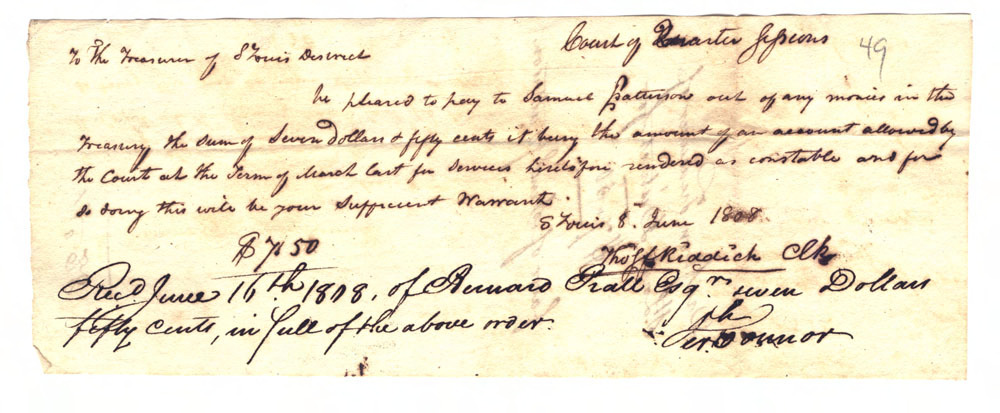 Court of Quarter Sessions
49
To The Treasurer of St Louis District
be pleased to pay to Samuel Patterson out of any monies in the
Treasury the sum of Seven Dollars & fifty cents it being the amount of an account allowed by
the Court at the Term of March last for services heretofore rendered as constable and for
so doing this will be your sufficient Warrant.
St Louis 8. June 1808
$7.50
Thos F Riddick Clk
Recd June 16th 1808, of Bernard Pratt Esqr. seven Dollars
fifty cents, in full of the above order.
Jer. Connor